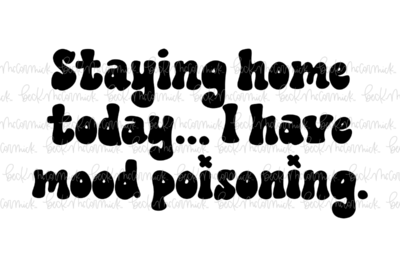 Staying home
today... I have
mood poisoning.